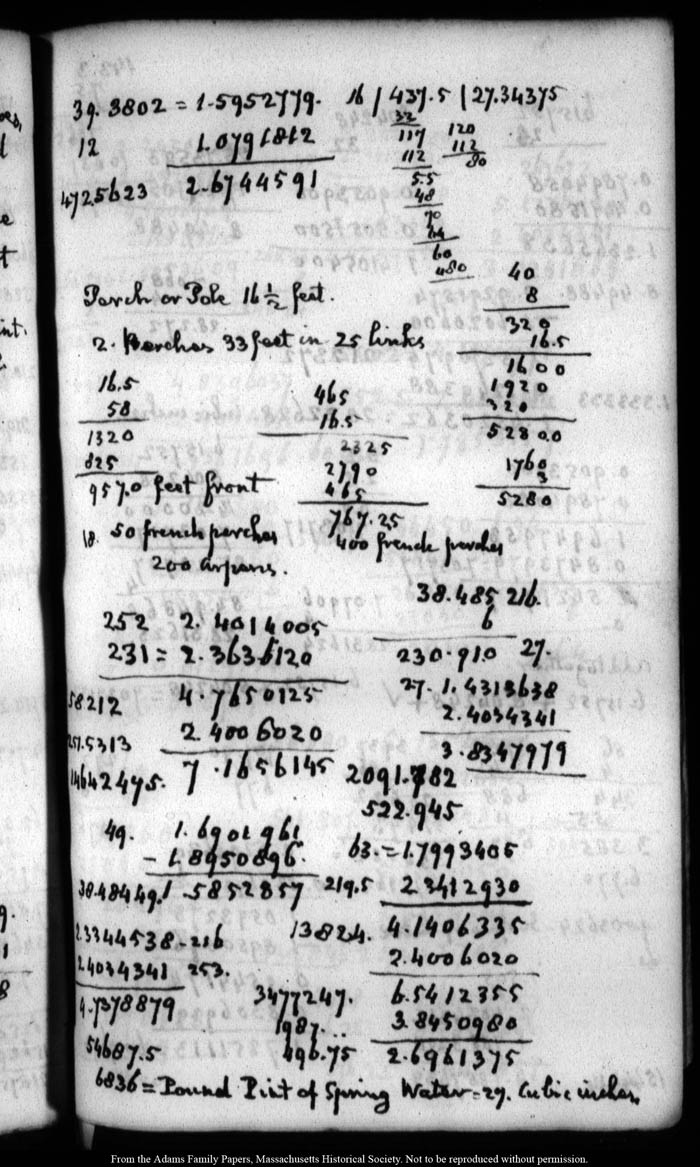 39.3802 = 1.5952779. 16 / 437.5 / 27.34375
12 1.0791812 32
4725623 2.6744591 117 120
112 112
5.5 80
48
70
64
60
480
40
8
Perch or Pole 16 1/2 feet.
320
16.5
2. Perches 33 feet in 25 links
1600
1920
320
52800
1760
3
5280
16.5
58
1320
825
957.0 feet front
465
16.5
2325
2790
465
767.25
18. 50 french perches 400 french perches
200 arpans.
38.485 216.
6
230.910 27.
252 2.4014005
231 = 2.3636120
58212 4.7650125
257.5313 2.4006020
14642475. 7.1656145
27. 1.4313638
2.4034341
3.8347979
2091.782
522.945
49. 1.6901961
- 1.8950896.
38.48449. 1.5852857
63. = 1.7993405
219.5 2.3412930
13824. 4.1406335
2.4006020
3477247. 6.5412355
1987... 3.8450980
496.75 2.6961375
2.3344538-216
2.4034341 253.
4.7378879
54687.5
6836 = Pound Pint of Spring Water = 27. Cubic inches,
From the Adams Family Papers, Massachusetts Historical Society. Not to be reproduced without permission.